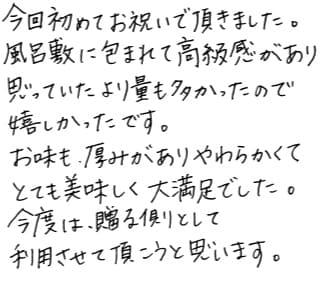 今回初めてお祝いで頂きました。
風呂敷に包まれて高級感があり
思っていたより量も多かったので
嬉しかったです。
お味も、厚みがありやわらかくて
とても美味しく大満足でした。
今度は、贈る側として
利用させて頂こうと思います。